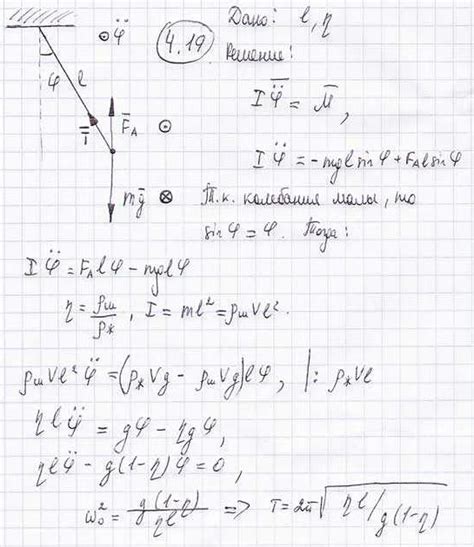 φ̈
4.19
Дано: l, η
Решение:
φ l
T̄ F̄_A
m ḡ
I φ̈ = M̄,
I φ̈ = -mgl sin φ + F_A l sin φ
Т.к. колебания малы, то
sin φ = φ. Тогда:
I φ̈ = F_A l φ - mgl φ
η = ρ_ш/ρ_ж, I = ml² = ρ_ш V l².
ρ_ш V l² φ̈ = (ρ_ж V g - ρ_ш V g) l φ, |: ρ_ж V l
η l φ̈ = g φ - η g φ,
η l φ̈ - g(1-η) φ = 0,
ω₀² = g(1-η)/ηl => T = 2π √(ηl/g(1-η))